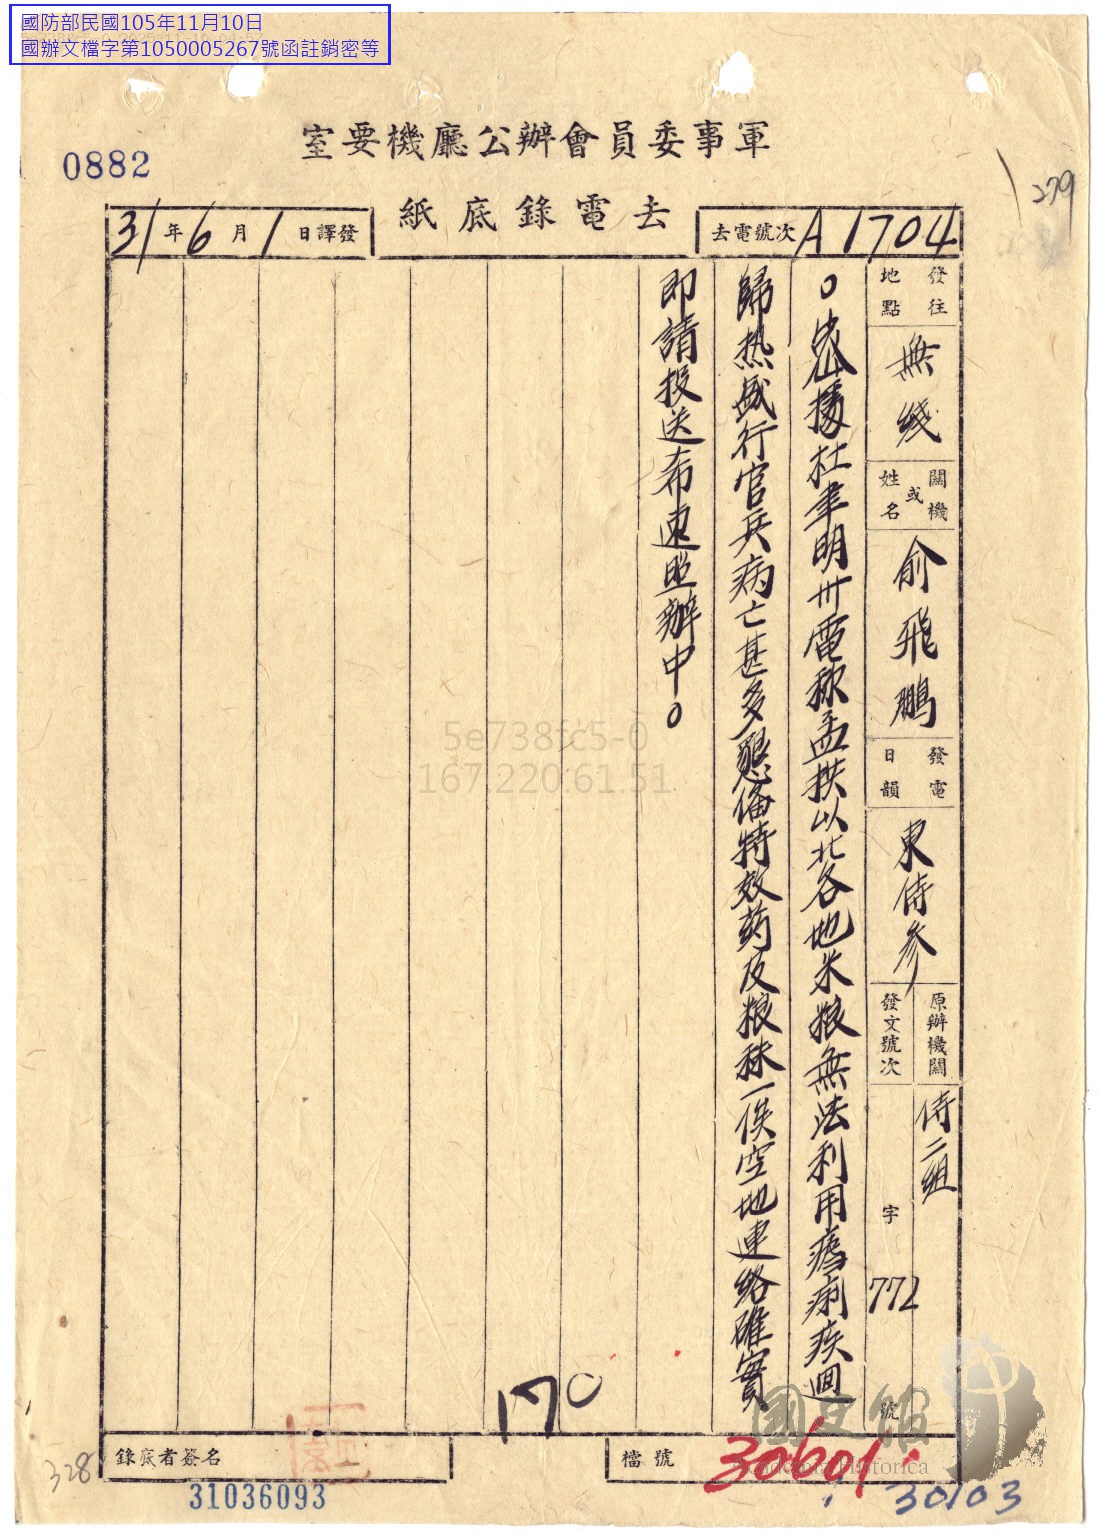 國防部民國105年11月10日
國辦文檔字第1050005267號函註銷密等
0882
279
軍事委員會辦公廳機要室
去電錄底紙
去電號次 A1704
31年6月1日譯發
發往地點
無綫
機關或姓名
俞飛鵬
發電日韻
東侍參
原辦機關
侍二組
發文號次
字772號
○密據杜聿明卅電称孟拱以北各地米粮無法利用瘧痢疾迴
歸热盛行官兵病亡甚多懇俻特效药及粮秣一俟空地連絡確實
即請投送希速照辦中○
5e738fc5-0
167.220.61.51
170
錄底者簽名
檔號
30601
30103
31036093
328
國史館
Academia Historica